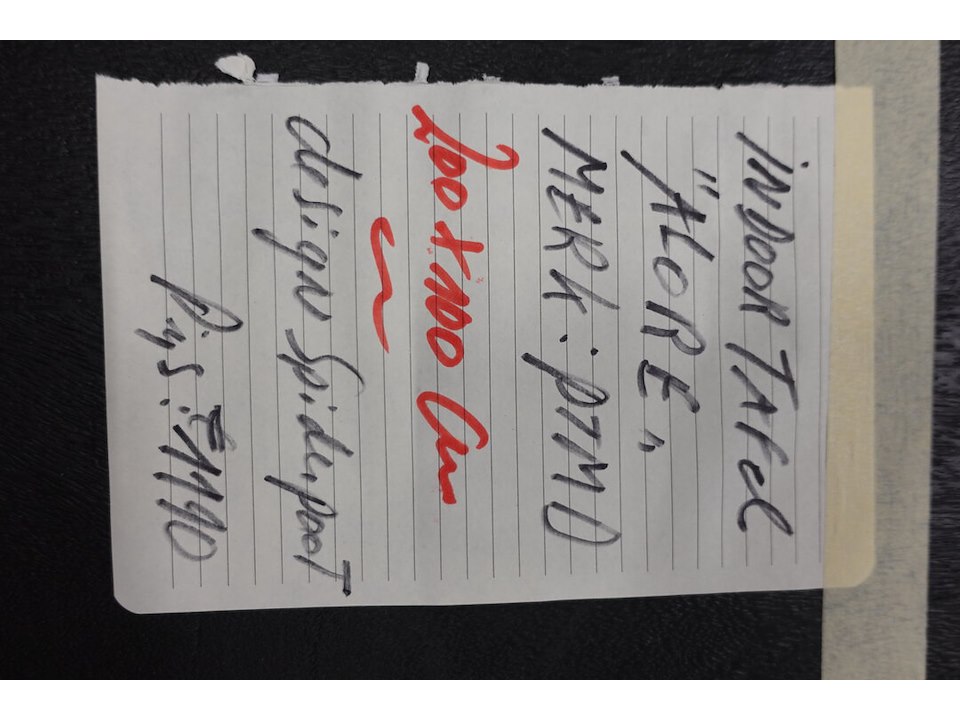 INDOOR TAFEL
"ALORE"
MERK: PTMD
200 x 100 Cm
design Spiderpoot
Pijs: €1190